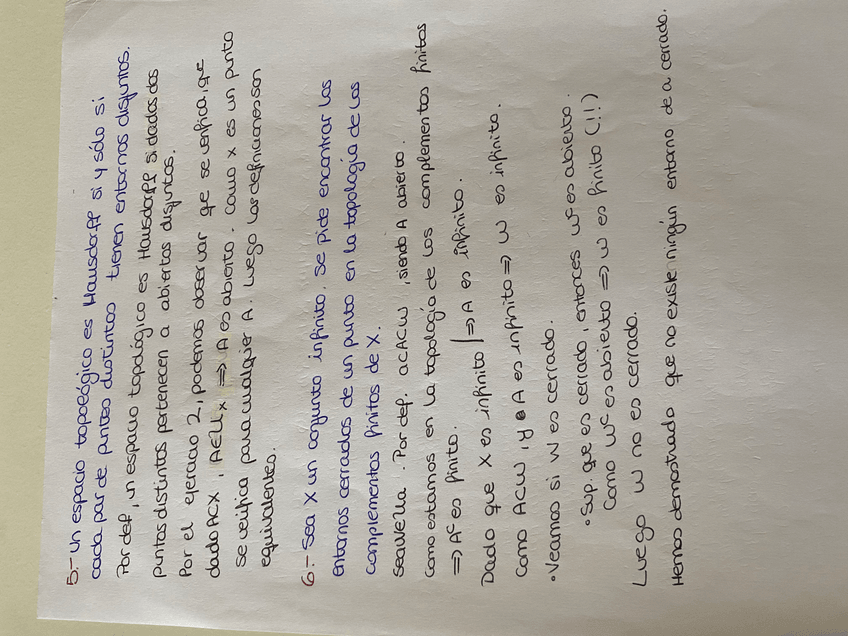 5.- Un espacio topológico es Hausdorff si y sólo si
cada par de puntos distintos tienen entornos disjuntos.
Por def, un espacio topológico es Hausdorff si dados dos
puntos distintos pertenecen a abiertos disjuntos.
Por el ejercicio 2, podemos observar que se verifica, que
dado A⊂X, A∈U_x ⇒ A es abierto. Como x es un punto
se verifica para cualquier A. Luego las definiciones son
equivalentes.
6.- Sea X un conjunto infinito. Se pide encontrar los
entornos cerrados de un punto en la topología de los
complementos finitos de X.
Sea W∈U_a. Por def. a∈A⊂W, siendo A abierto.
Como estamos en la topología de los complementos finitos
⇒ A^c es finito.
Dado que X es infinito | ⇒ A es infinito.
Como A⊂W, y A es infinito ⇒ W es infinito.
• Veamos si W es cerrado.
• Sup. que es cerrado, entonces W^c es abierto.
Como W^c es abierto ⇒ W es finito (!!)
Luego W no es cerrado.
Hemos demostrado que no existe ningún entorno de a cerrado.